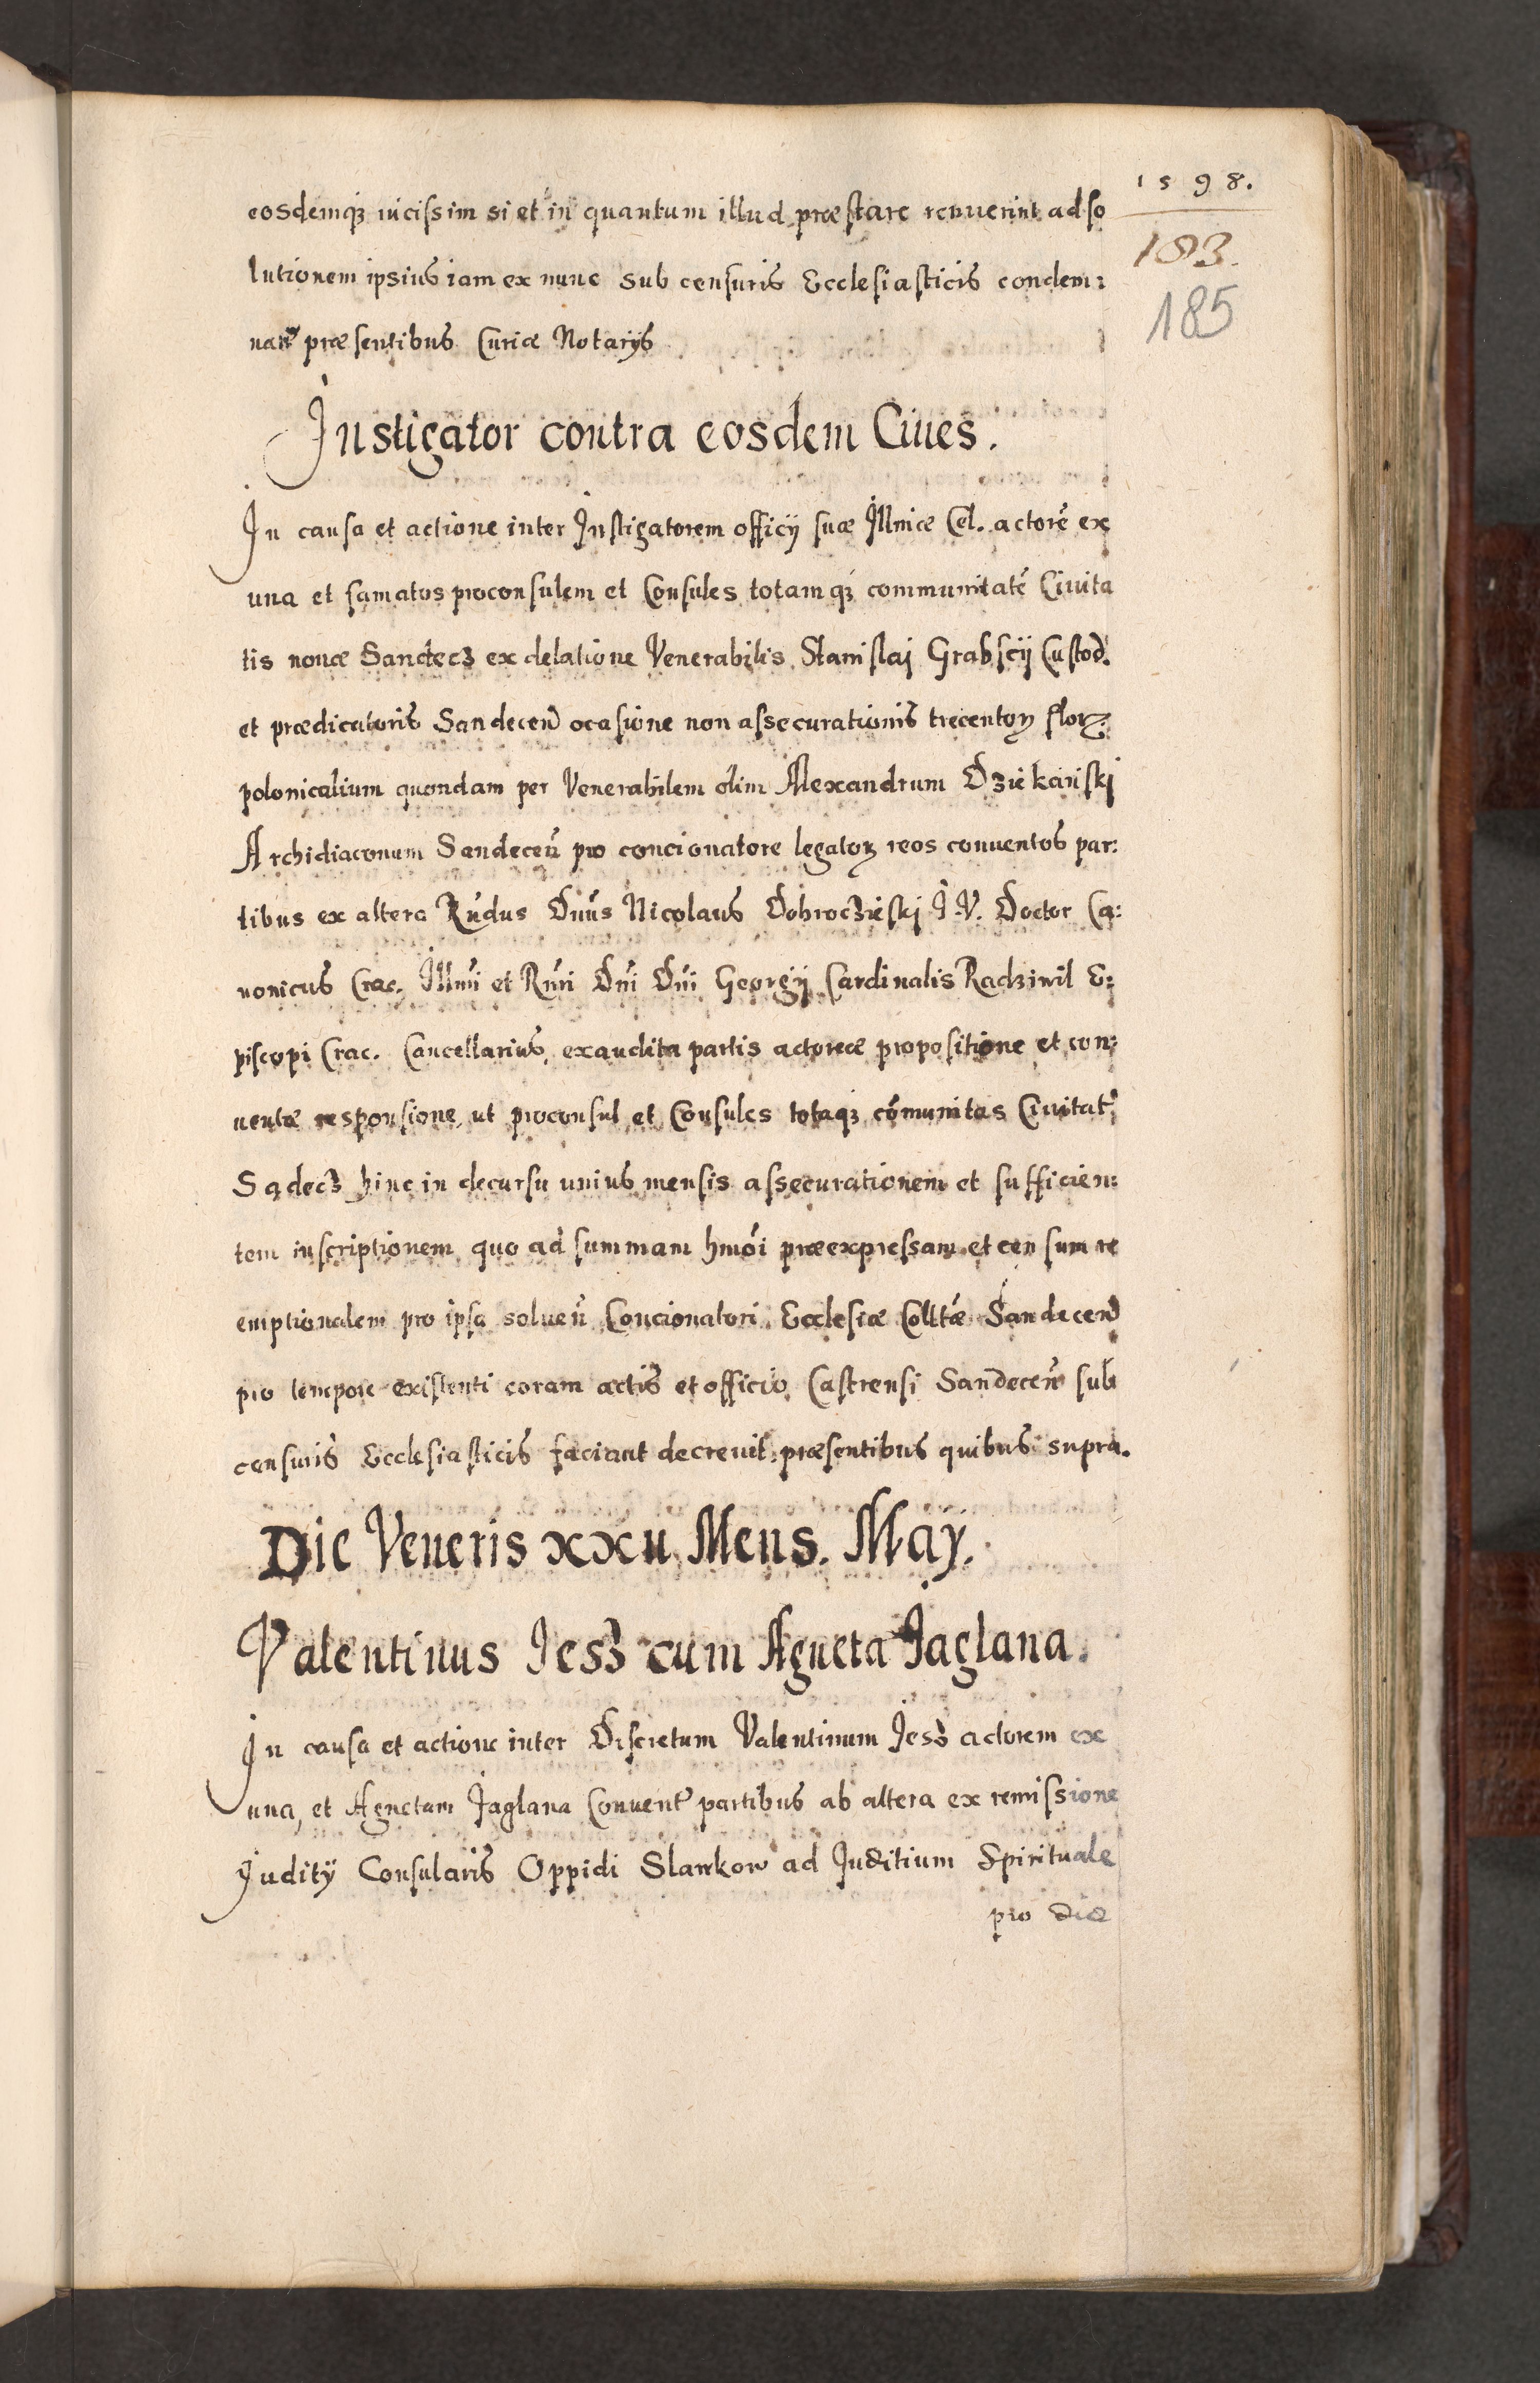 1598.
183.
185
eosdemq3 vicissim si et in quantum illud præstare renuerint ad so
lutionem ipsius iam ex nunc sub censuris Ecclesiasticis condem:
præsentibus Curiæ Notarijs
Instigator contra eosdem Ciues.
In causa et actione inter Instigatorem officij suæ Illmæ Cel. actorē ex
una et famatos proconsulem et Consules totamq3 communitatē Ciuita
tis nouæ Sandecz ex delatione Venerabilis Stanislai Grabscij Custod.
et prædicatoris Sandecen̄ ocasione non assecurationis trecentoꝝ floꝝ
polonicalium quondam per Venerabilem olim Alexandrum Dziekański
Archidiaconum Sandecen̄ pro concionatore legatoꝝ reos conuentos par:
tibus ex altera Rṅdus Dn̄us Nicolaus Dobrocziěski I. V. Doctor Ca:
nonicus Crac. Illm̄i et Rm̄i Dn̄i Dn̄i Georgij Cardinalis Radziwil E:
piscopi Crac. Cancellarius, exaudita partis actoreæ propositione et con:
uentæ responsione, ut proconsul et Consules totaq3 cōmunitas Ciuitat.
Sądecz hinc in decursu unius mensis assecurationem et sufficien:
tem inscriptionem quo ad summam hmōi præexpressam et censum re
emptionalem pro ipsa soluen̄ Concionatori Ecclesiæ Colltæ Sandecen̄
pro tempore existenti coram actis et officio Castrensi Sandecen̄ sub
censuris Ecclesiasticis faciant decreuit, præsentibus quibus supra.
Die Veneris xxii Mens. Maij.
Valentinus Jesz cum Agneta Jaglana.
In causa et actione inter Discretum Valentinum Jesz actorem ex
una, et Agnetam Jaglana Conuent. partibus ab altera ex remissione
Juditij Consularis Oppidi Slawkow ad Juditium Spirituale
pro die